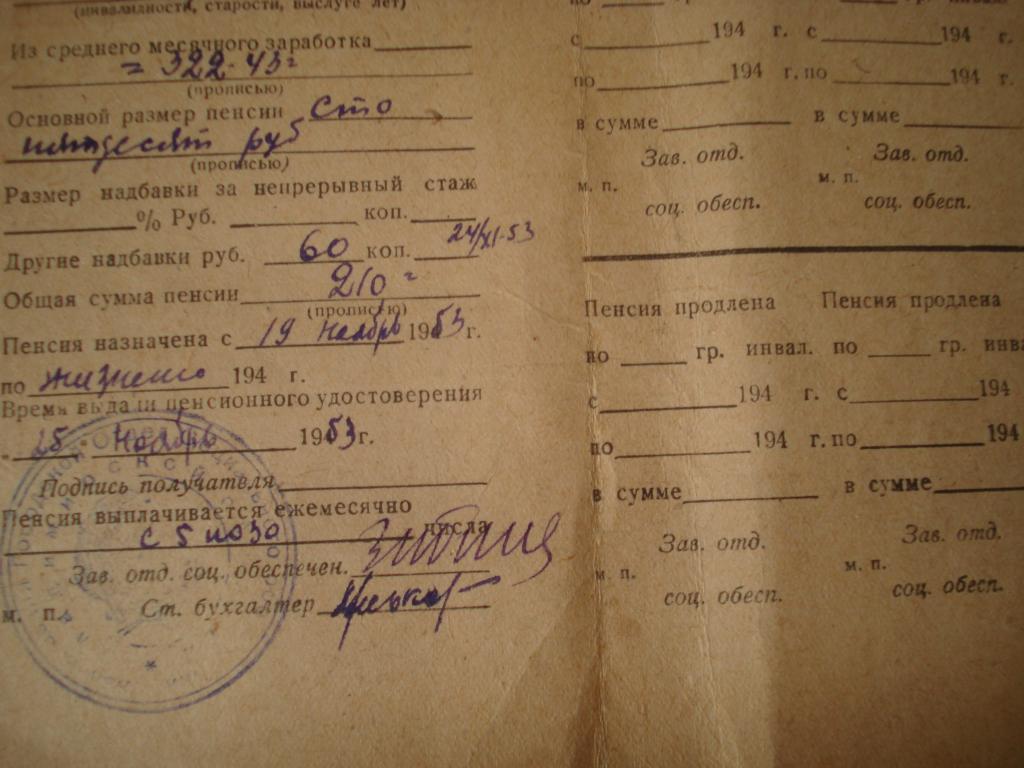 (инвалидности, старости, выслуге лет)
Из среднего месячного заработка
= 322-43
(прописью)
Основной размер пенсии сто
пятдесят руб
(прописью)
Размер надбавки за непрерывный стаж
% Руб. коп.
Другие надбавки руб. 60 коп. 24/XI-53
Общая сумма пенсии 210
(прописью)
Пенсия назначена с 19 ноябрь 1953 г.
по жизнено 194 г.
Время выдачи пенсионного удостоверения
25 ноябрь 1953 г.
Подпись получателя
Пенсия выплачивается ежемесячно
с 5 по 30 числа
Зав. отд. соц. обеспечен.
м. п. Ст. бухгалтер
по гр. инвал.
с 194 г.
по 194 г.
в сумме
Зав. отд.
м. п.
соц. обесп.
с 194 г.
по 194 г.
в сумме
Зав. отд.
м. п.
соц. обесп.
Пенсия продлена
по гр. инвал.
с 194 г.
по 194 г.
в сумме
Зав. отд.
м. п.
соц. обесп.
Пенсия продлена
по гр. инва
с 194
по 194
в сумме
Зав. отд.
м. п.
соц. обесп.